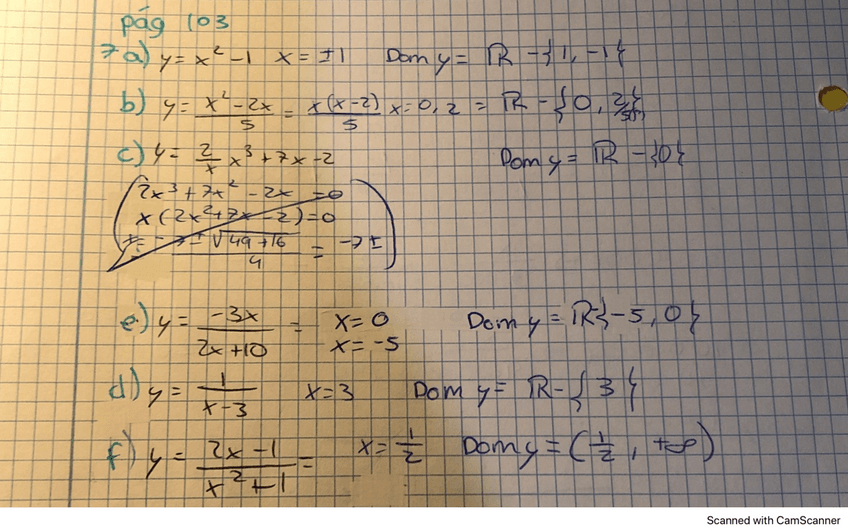 pág 103
7 a) y = x² - 1   x = ±1   Dom y = ℝ - {1, -1}
b) y = (x² - 2x)/5 = x(x-2)/5   x = 0, 2 = ℝ - {0, 2}
c) y = 2/x x³ + 7x - 2   Dom y = ℝ - {0}
2x³ + 7x² - 2x = 0
x(2x² + 7x - 2) = 0
± √(49+16)/4 = -7 ±
e) y = -3x/(2x+10) =   x = 0   Dom y = ℝ-{-5, 0}
x = -5
d) y = 1/(x-3)   x = 3   Dom y = ℝ - {3}
f) y = (2x-1)/(x²+1) =   x = 1/2   Dom y = (1/2, +∞)
Scanned with CamScanner